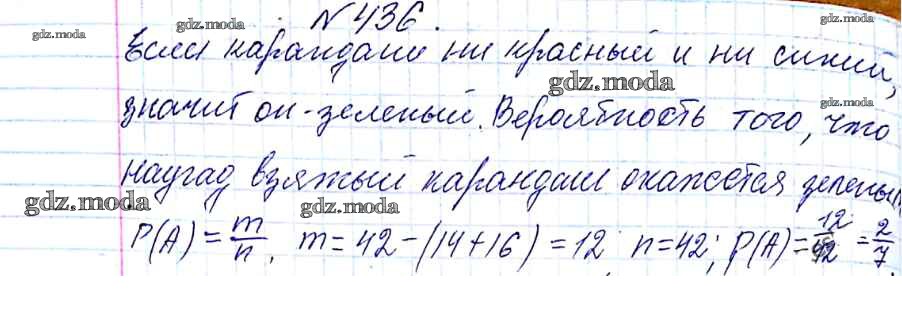 № 436.
Если карандаш ни красный и ни синий,
значит он - зеленый. Вероятность того, что
наугад взятый карандаш окажется зеленым
P(A) = m/n, m = 42 - (14 + 16) = 12; n = 42; P(A) = 12/42 = 2/7.
gdz.moda
gdz.moda
gdz.moda
gdz.moda
gdz.moda
gdz.moda
gdz.moda